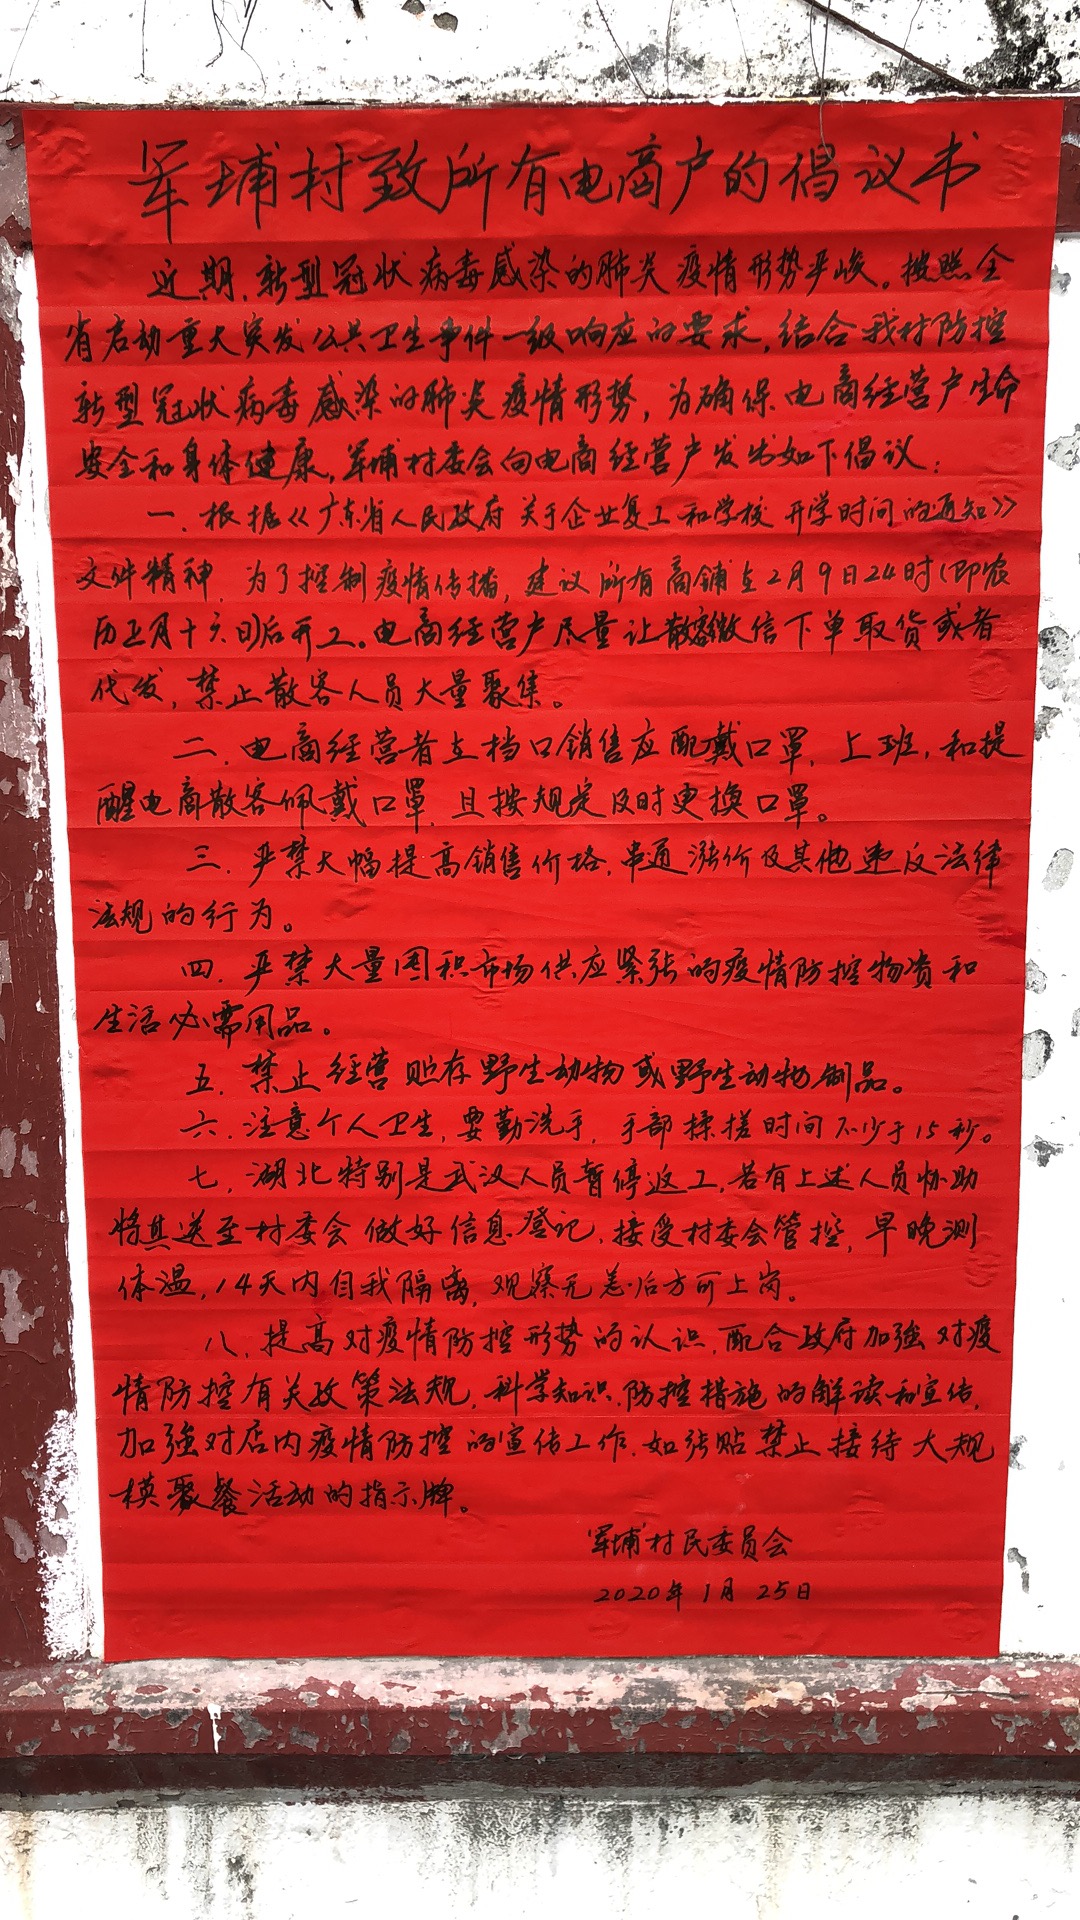 军埔村致所有电商户的倡议书
近期，新型冠状病毒感染的肺炎疫情形势严峻。按照全
省启动重大突发公共卫生事件一级响应的要求，结合我村防控
新型冠状病毒感染的肺炎疫情形势，为确保电商经营户生命
安全和身体健康，军埔村委会向电商经营户发出如下倡议：
一、根据《广东省人民政府关于企业复工和学校开学时间的通知》
文件精神，为了控制疫情传播，建议所有商铺在2月9日24时（即农
历正月十六日)后开工。电商经营户尽量让散客微信下单取货或者
代发，禁止散客人员大量聚集。
二、电商经营者在档口销售应配戴口罩，上班，和提
醒电商散客佩戴口罩，且按规定及时更换口罩。
三、严禁大幅提高销售价格，串通涨价及其他违反法律
法规的行为。
四、严禁大量囤积市场供应紧张的疫情防控物资和
生活必需用品。
五、禁止经营贮存野生动物或野生动物制品。
六、注意个人卫生，要勤洗手，手部揉搓时间不少于15秒。
七、湖北特别是武汉人员暂停返工，若有上述人员协助
将其送至村委会做好信息登记，接受村委会管控，早晚测
体温，14天内自我隔离，观察无恙后方可上岗。
八、提高对疫情防控形势的认识，配合政府加强对疫
情防控有关政策法规，科学知识，防控措施的解读和宣传，
加强对店内疫情防控的宣传工作，如张贴禁止接待大规
模聚餐活动的指示牌。
军埔村民委员会
2020年1月25日